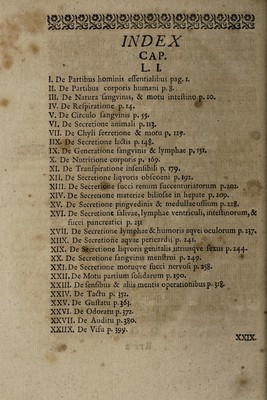 INDEX
CAP.
L. I.
I. De Partibus hominis essentialibus pag. 1.
II. De Partibus corporis humani p. 8.
III. De Natura sangvinis, & motu intestino p. 10.
IV. De Respiratione p. 14.
V. De Circulo sangvinis p. 55.
VI. De Secretione animali p. 113.
VII. De Chyli secretione & motu p. 129.
IIX. De Secretione lactis p. 148.
IX. De Generatione sangvinis & lymphae p. 151.
X. De Nutritione corporis p. 169.
XI. De Transpiratione insensibili p. 179.
XII. De Secretione liqvoris obscoeni p. 192.
XIII. De Secretione succi renum succenturiatorum p. 202.
XIV. De Secretione materiae biliosae in hepate p. 209.
XV. De Secretione pingvedinis & medullae ossium p. 228.
XVI. De Secretione salivae, lymphae ventriculi, intestinorum, &
succi pancreatici p. 231
XVII. De Secretione lymphae & humoris aqvei oculorum p. 237.
XIIX. De Secretione aqvae pericardij p. 241.
XIX. De Secretione liqvoris genitalis utriusqve sexus p. 244.
XX. De Secretione sangvinis menstrui p. 249.
XXI. De Secretione motuqve succi nervosi p. 258.
XXII. De Motu partium solidarum p. 290.
XXIII. De sensibus & aliis mentis operationibus p. 318.
XXIV. De Tactu p. 352.
XXV. De Gustatu p. 363.
XXVI. De Odoratu p. 372.
XXVII. De Auditu p. 380.
XXIIX. De Visu p. 399.
XXIX.